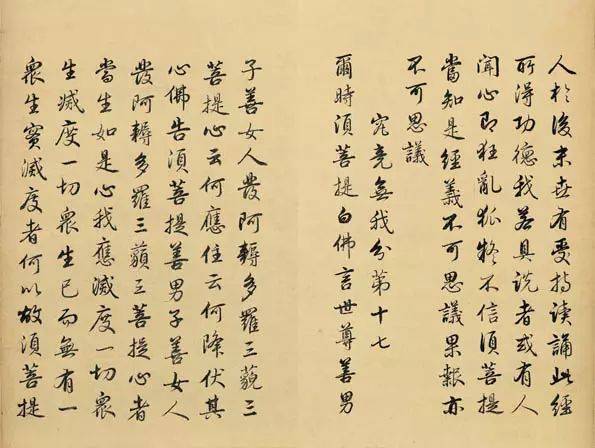 人於後末世有受持讀誦此經
所得功德我若具說者或有人
聞心即狂亂狐疑不信須菩提
當知是經義不可思議果報亦
不可思議
究竟無我分第十七
爾時須菩提白佛言世尊善男
子善女人發阿耨多羅三藐三
菩提心云何應住云何降伏其
心佛告須菩提善男子善女人
發阿耨多羅三藐三菩提心者
當生如是心我應滅度一切衆
生滅度一切衆生已而無有一
衆生實滅度者何以故須菩提